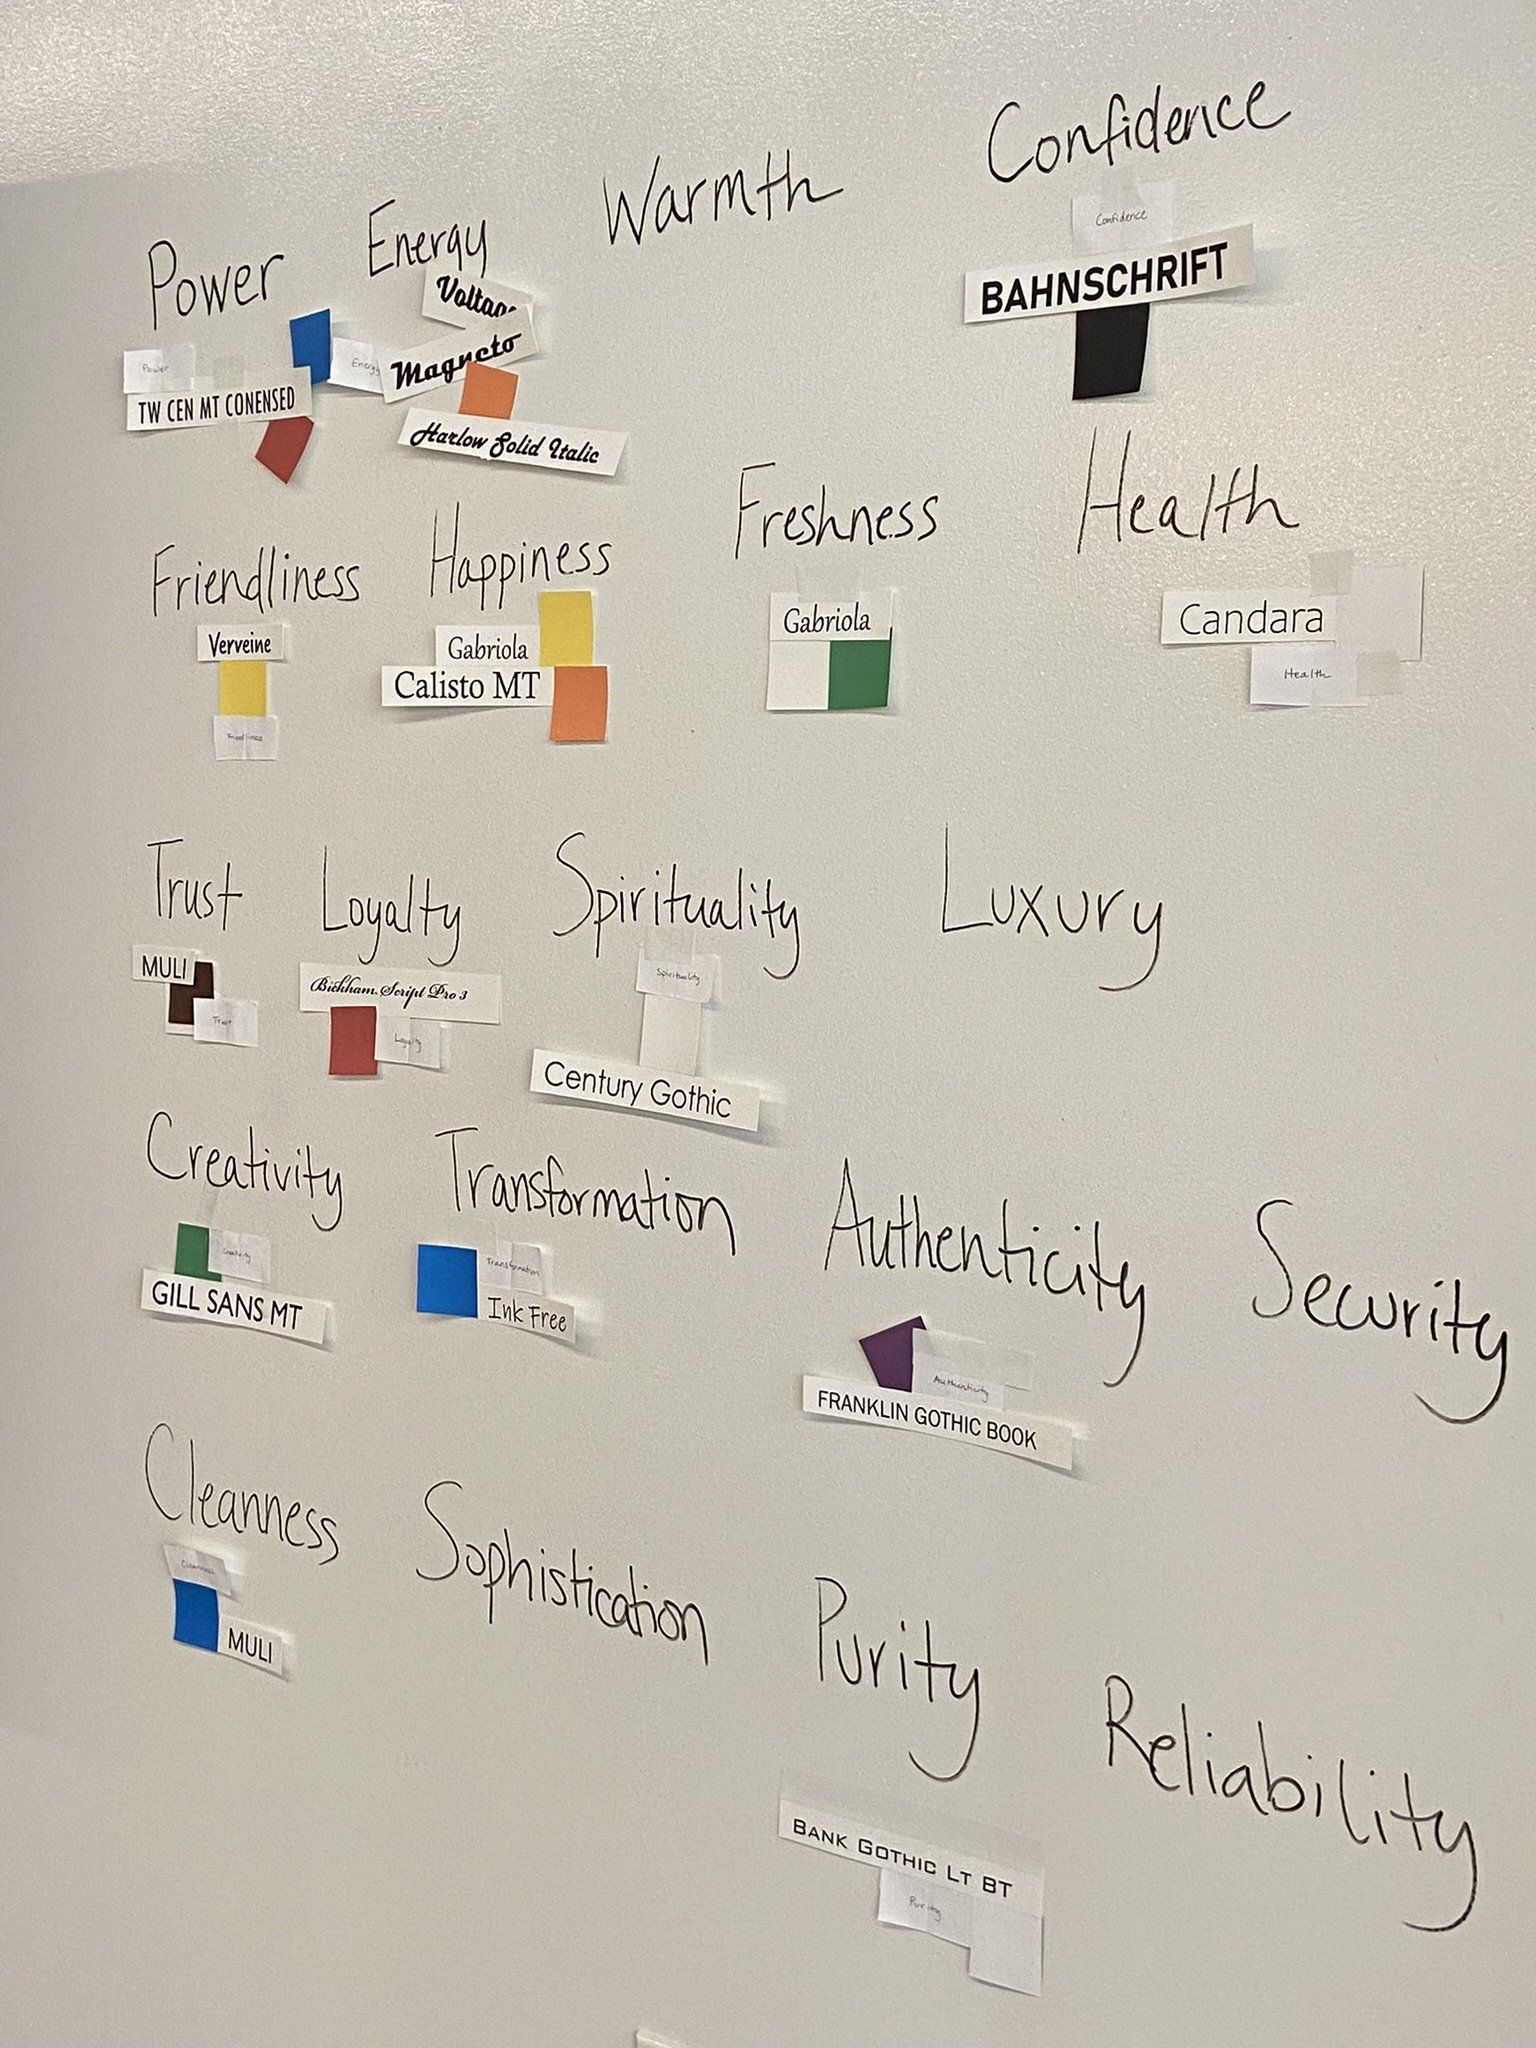 Power Energy Warmth Confidence
Confidence
BAHNSCHRIFT
Voltage
Power
Energy
Magneto
TW CEN MT CONENSED
Harlow Solid Italic
Friendliness Happiness Freshness Health
Verveine
Gabriola
Gabriola
Candara
Calisto MT
Health
Friendliness
Trust Loyalty Spirituality Luxury
MULI
Bickham Script Pro 3
Spirituality
Trust
Loyalty
Century Gothic
Creativity Transformation Authenticity Security
Creativity
Transformation
GILL SANS MT
Ink Free
Authenticity
FRANKLIN GOTHIC BOOK
Cleanness Sophistication Purity Reliability
Cleanness
MULI
BANK GOTHIC LT BT
Purity